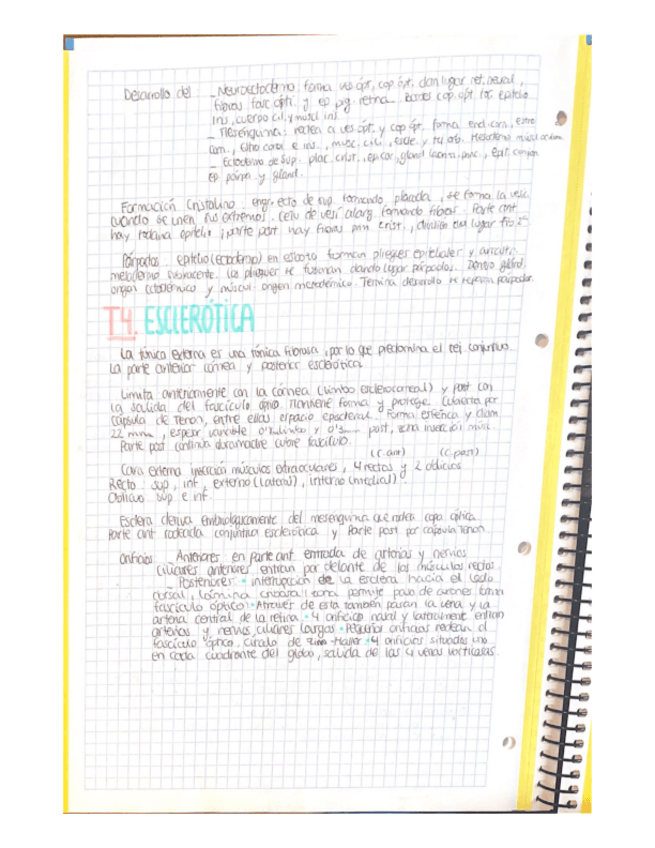 Desarrollo del: - Neuroectodermo: forma ves ópt, cop ópt, dan lugar ret. neural,
fibras fasc ópti. y ep pig retina. Bordes cop. ópt. for. epitelio
iris, cuerpo cil. y muscl iri.
- Mesénquima: rodea a ves ópt. y cop ópt, forma end. corn, estro
corn,
- Ectodermo de sup. plac. crist., ep. cor, gland
ep párp. y gland.
Formación Cristalino: engr. ecto de sup. formando placoda, se forma la vesí.
cuando se unen sus extremos. Celu de vesí alarg. formando fibras. Parte ant
hay todavía epitelio, parte post hay fibras prim crist.,
Párpados: epitelio (ectodermo) en esbozo forman pliegues epiteliales y
mesodermo subyacente. Los pliegues se fusionan dando lugar párpados. Dentro glánd.
origen ectodérmico y múscul origen mesodérmico. Termina desarrollo se separan párpados.
T4. ESCLERÓTICA
La túnica externa es una túnica fibrosa, por lo que predomina el tej. conjuntivo.
La parte anterior córnea y posterior esclerótica.
Limita anteriormente con la córnea (limbo esclerocorneal) y post con
la salida del fascículo óptico. Mantiene forma y protege. Cubierta por
cápsula de Tenon, entre ellas espacio epiescleral. Forma esférica y diam
22 mm, espesor variable post, zona inserción músc.
Parte post continúa duramadre cubre fascículo.
(c. ant) (c. post)
Cara externa inserción músculos extraoculares, 4 rectos y 2 oblicuos
Recto: sup, inf, externo (lateral), interno (medial)
Oblicuo: sup e inf.
Esclera deriva embriológicamente del mesénquima que rodea copa óptica.
Parte ant. rodeada conjuntiva esclerótica y parte post por cápsula Tenon.
Orificios: - Anteriores en parte ant. entrada de arterias y nervios
ciliares anteriores, entran por delante de los músculos rectos.
- Posteriores • interrupción de la esclera hacia el lado
dorsal, lámina cribosa (zona permite paso de axones forma
fascículo óptico) • A través de esta también pasan la vena y la
arteria central de la retina • 4 orificios nasal y lateralmente entran
arterias y nervios ciliares largos • Pequeños orificios rodean al
fascículo óptico, círculo de Zinn-Haller • 4 orificios situados uno
en cada cuadrante del globo, salida de las 4 venas vorticosas.